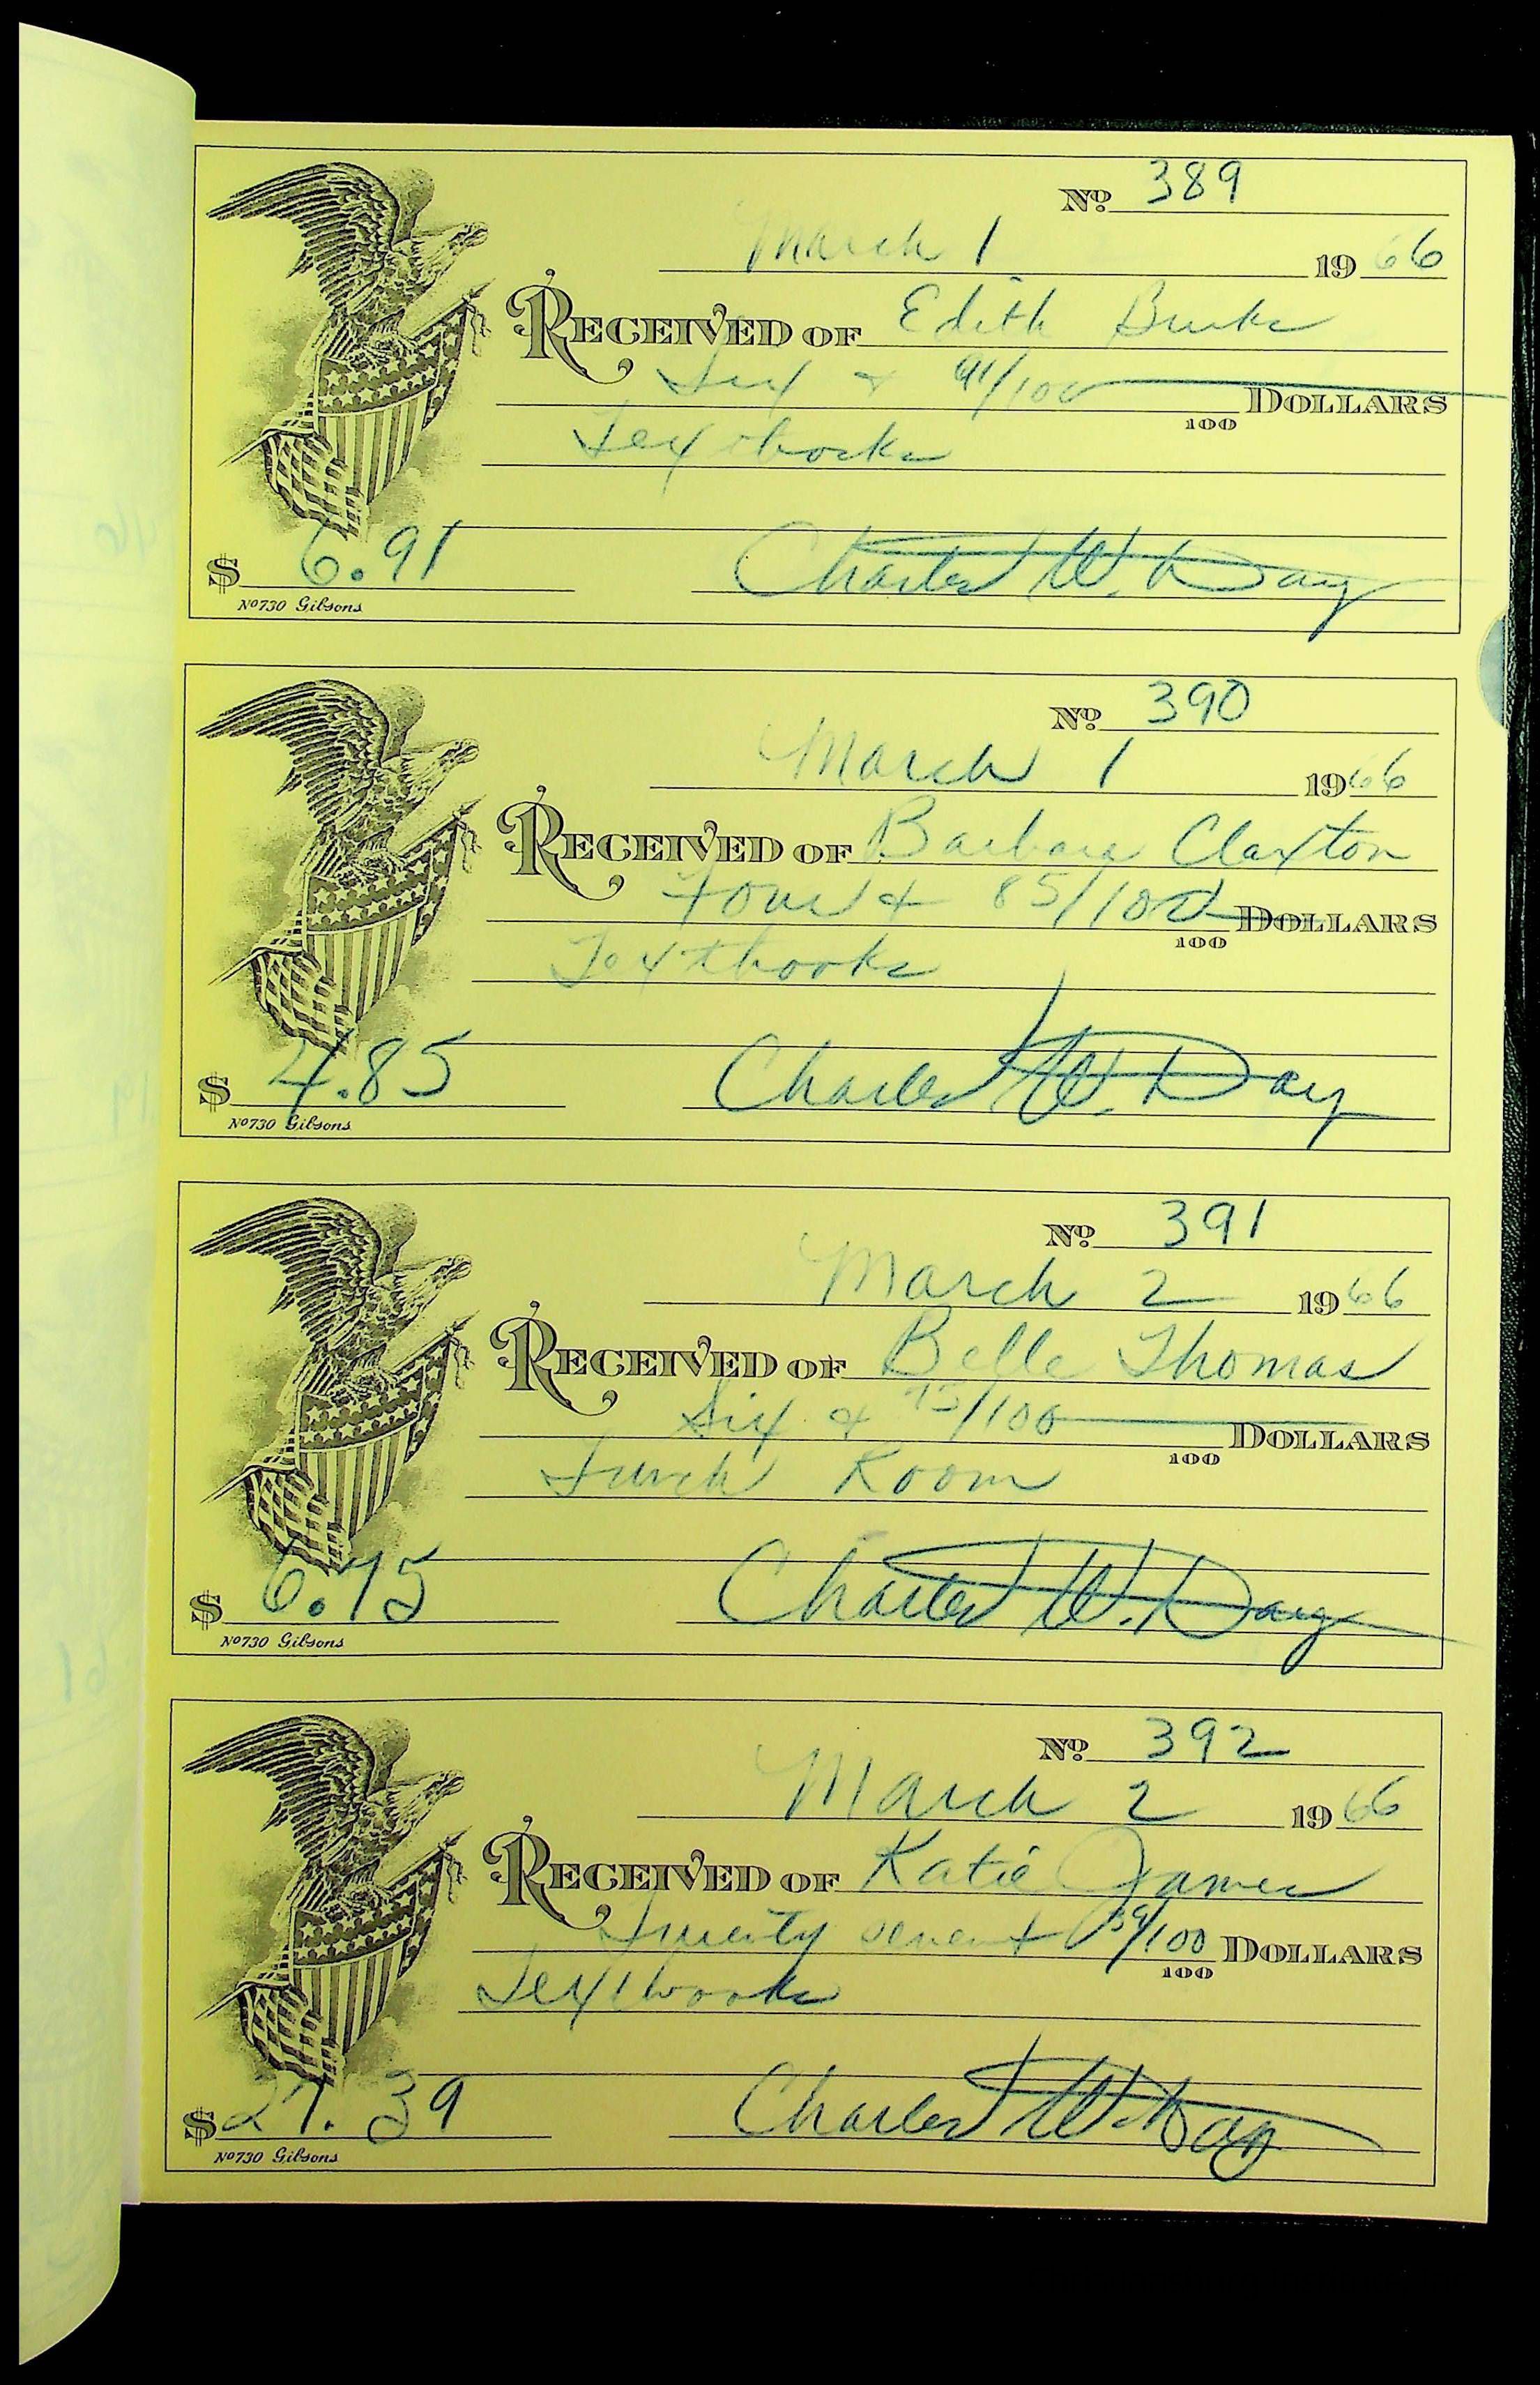 No. 389
March 1 1966
RECEIVED OF Edith Burks
Six & 91/100 DOLLARS
100
Textbooks
$ 6.91 Charles W. Day
No 730 Gibsons
No. 390
March 1 1966
RECEIVED OF Barbara Claxton
Four & 85/100 DOLLARS
100
Textbooks
$ 4.85 Charles W. Day
No 730 Gibsons
No. 391
March 2 1966
RECEIVED OF Belle Thomas
Six & 75/100 DOLLARS
100
Lunch Room
$ 6.75 Charles W. Day
No 730 Gibsons
No. 392
March 2 1966
RECEIVED OF Katie James
Twenty seven & 39/100 DOLLARS
100
Textbooks
$ 27.39 Charles W. Day
No 730 Gibsons